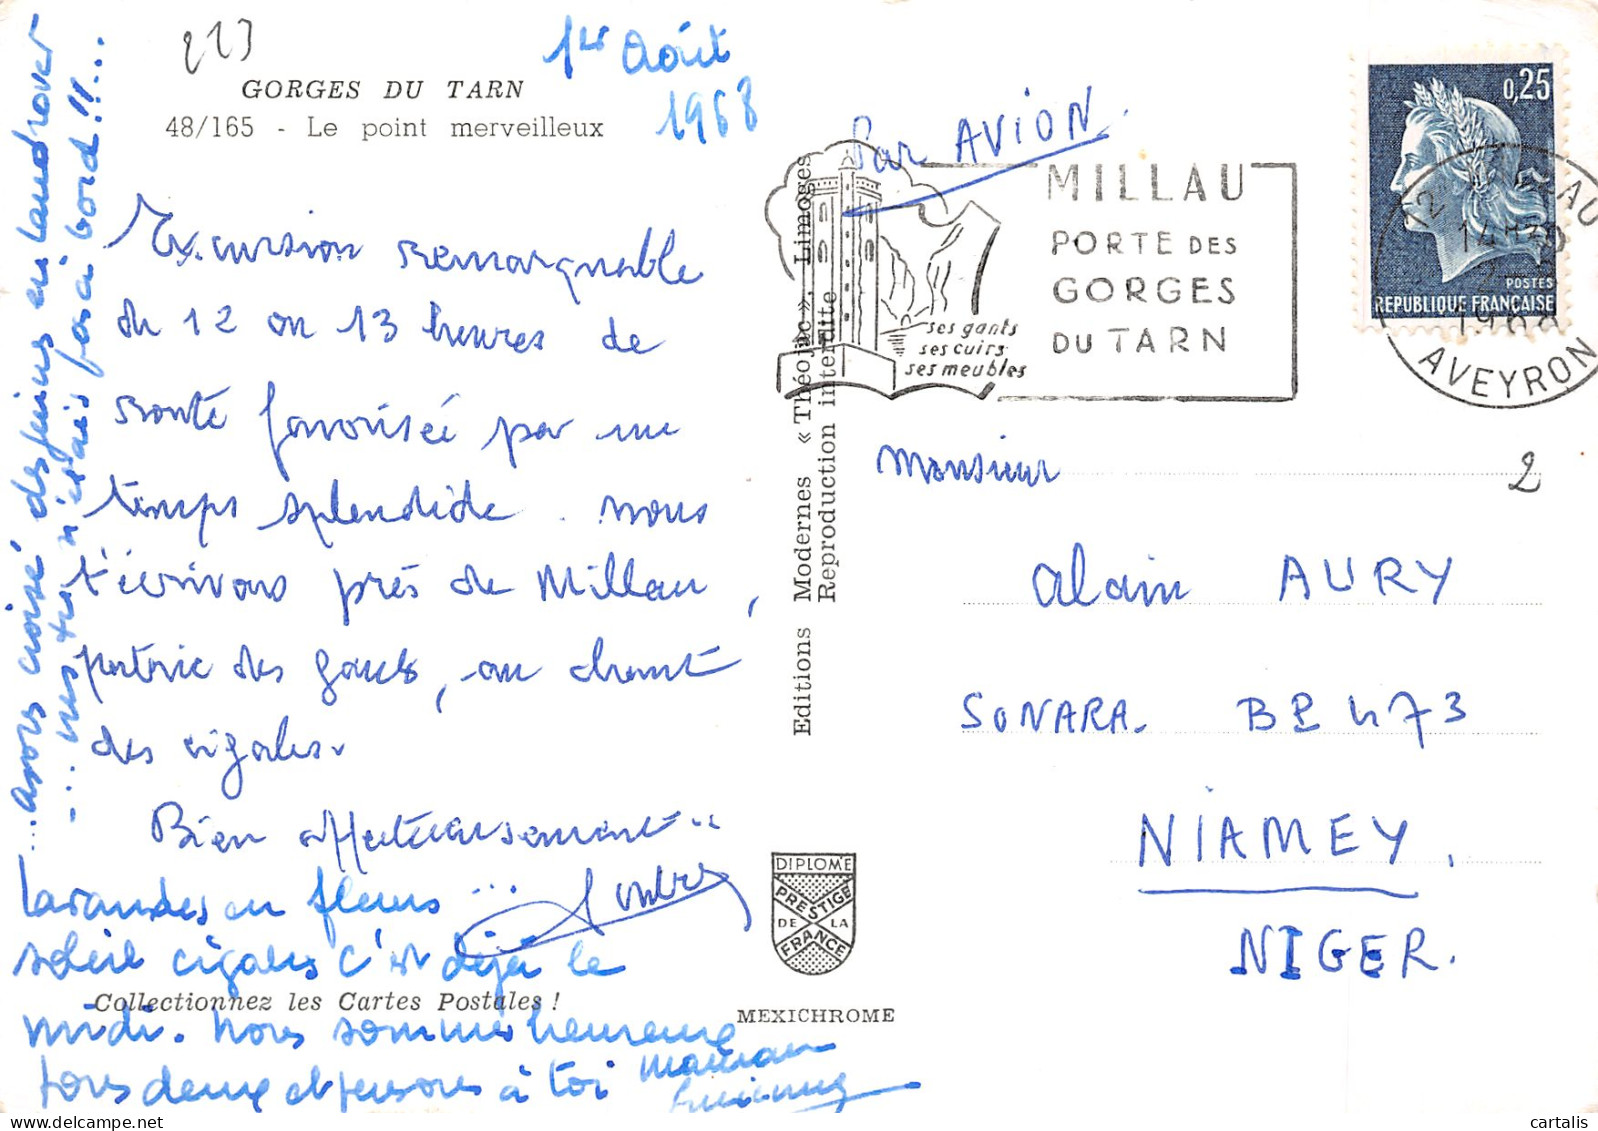 213
GORGES DU TARN
48/165 - Le point merveilleux
1er Août
1968
Excursion remarquable
du 12 ou 13 heures de
route favorisée par un
temps splendide. nous
t'écrivons près de Millau,
patrie des gants, au chant
des cigales.
Bien affectueusement..
lavandes en fleurs ...
soleil cigales c'est déjà le
midi. Nous sommes heureux
tous deux et pensons à toi
Maman
...avons croisé des jeunes en Landrover
-... mais tu n'étais pas à bord!!...
Collectionnez les Cartes Postales !
Editions Modernes « Théojac », Limoges
Reproduction interdite
DIPLOME
PRESTIGE
DE LA
FRANCE
MEXICHROME
Par AVION.
MILLAU
PORTE DES
GORGES
DU TARN
ses gants
ses cuirs
ses meubles
0,25
POSTES
REPUBLIQUE FRANÇAISE
12 MILLAU
14H30
2-8
1968
AVEYRON
Monsieur
2
Alain AURY
SONARA. BP 473
NIAMEY.
NIGER.
cartalis